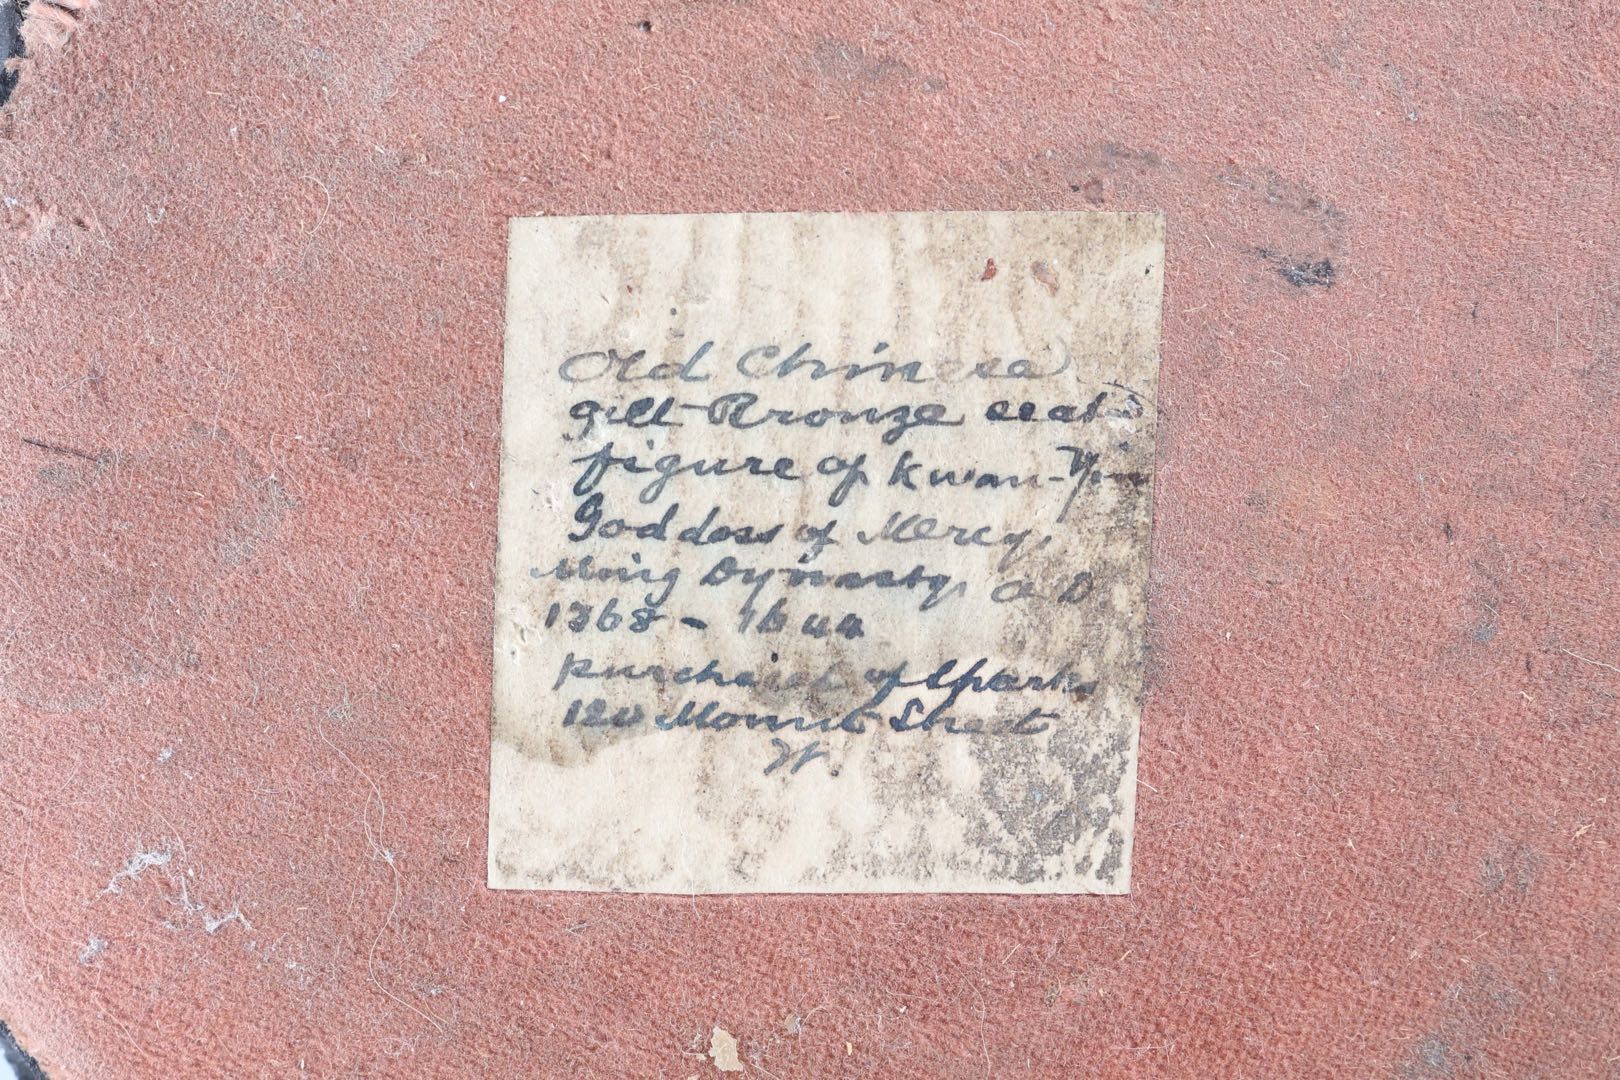 Old Chinese
gilt Bronze seated
figure of Kwan-Yin
Goddess of Mercy,
Ming Dynasty, A.D.
1368 - 1644
purchased of Sparks
120 Mount Street
W.